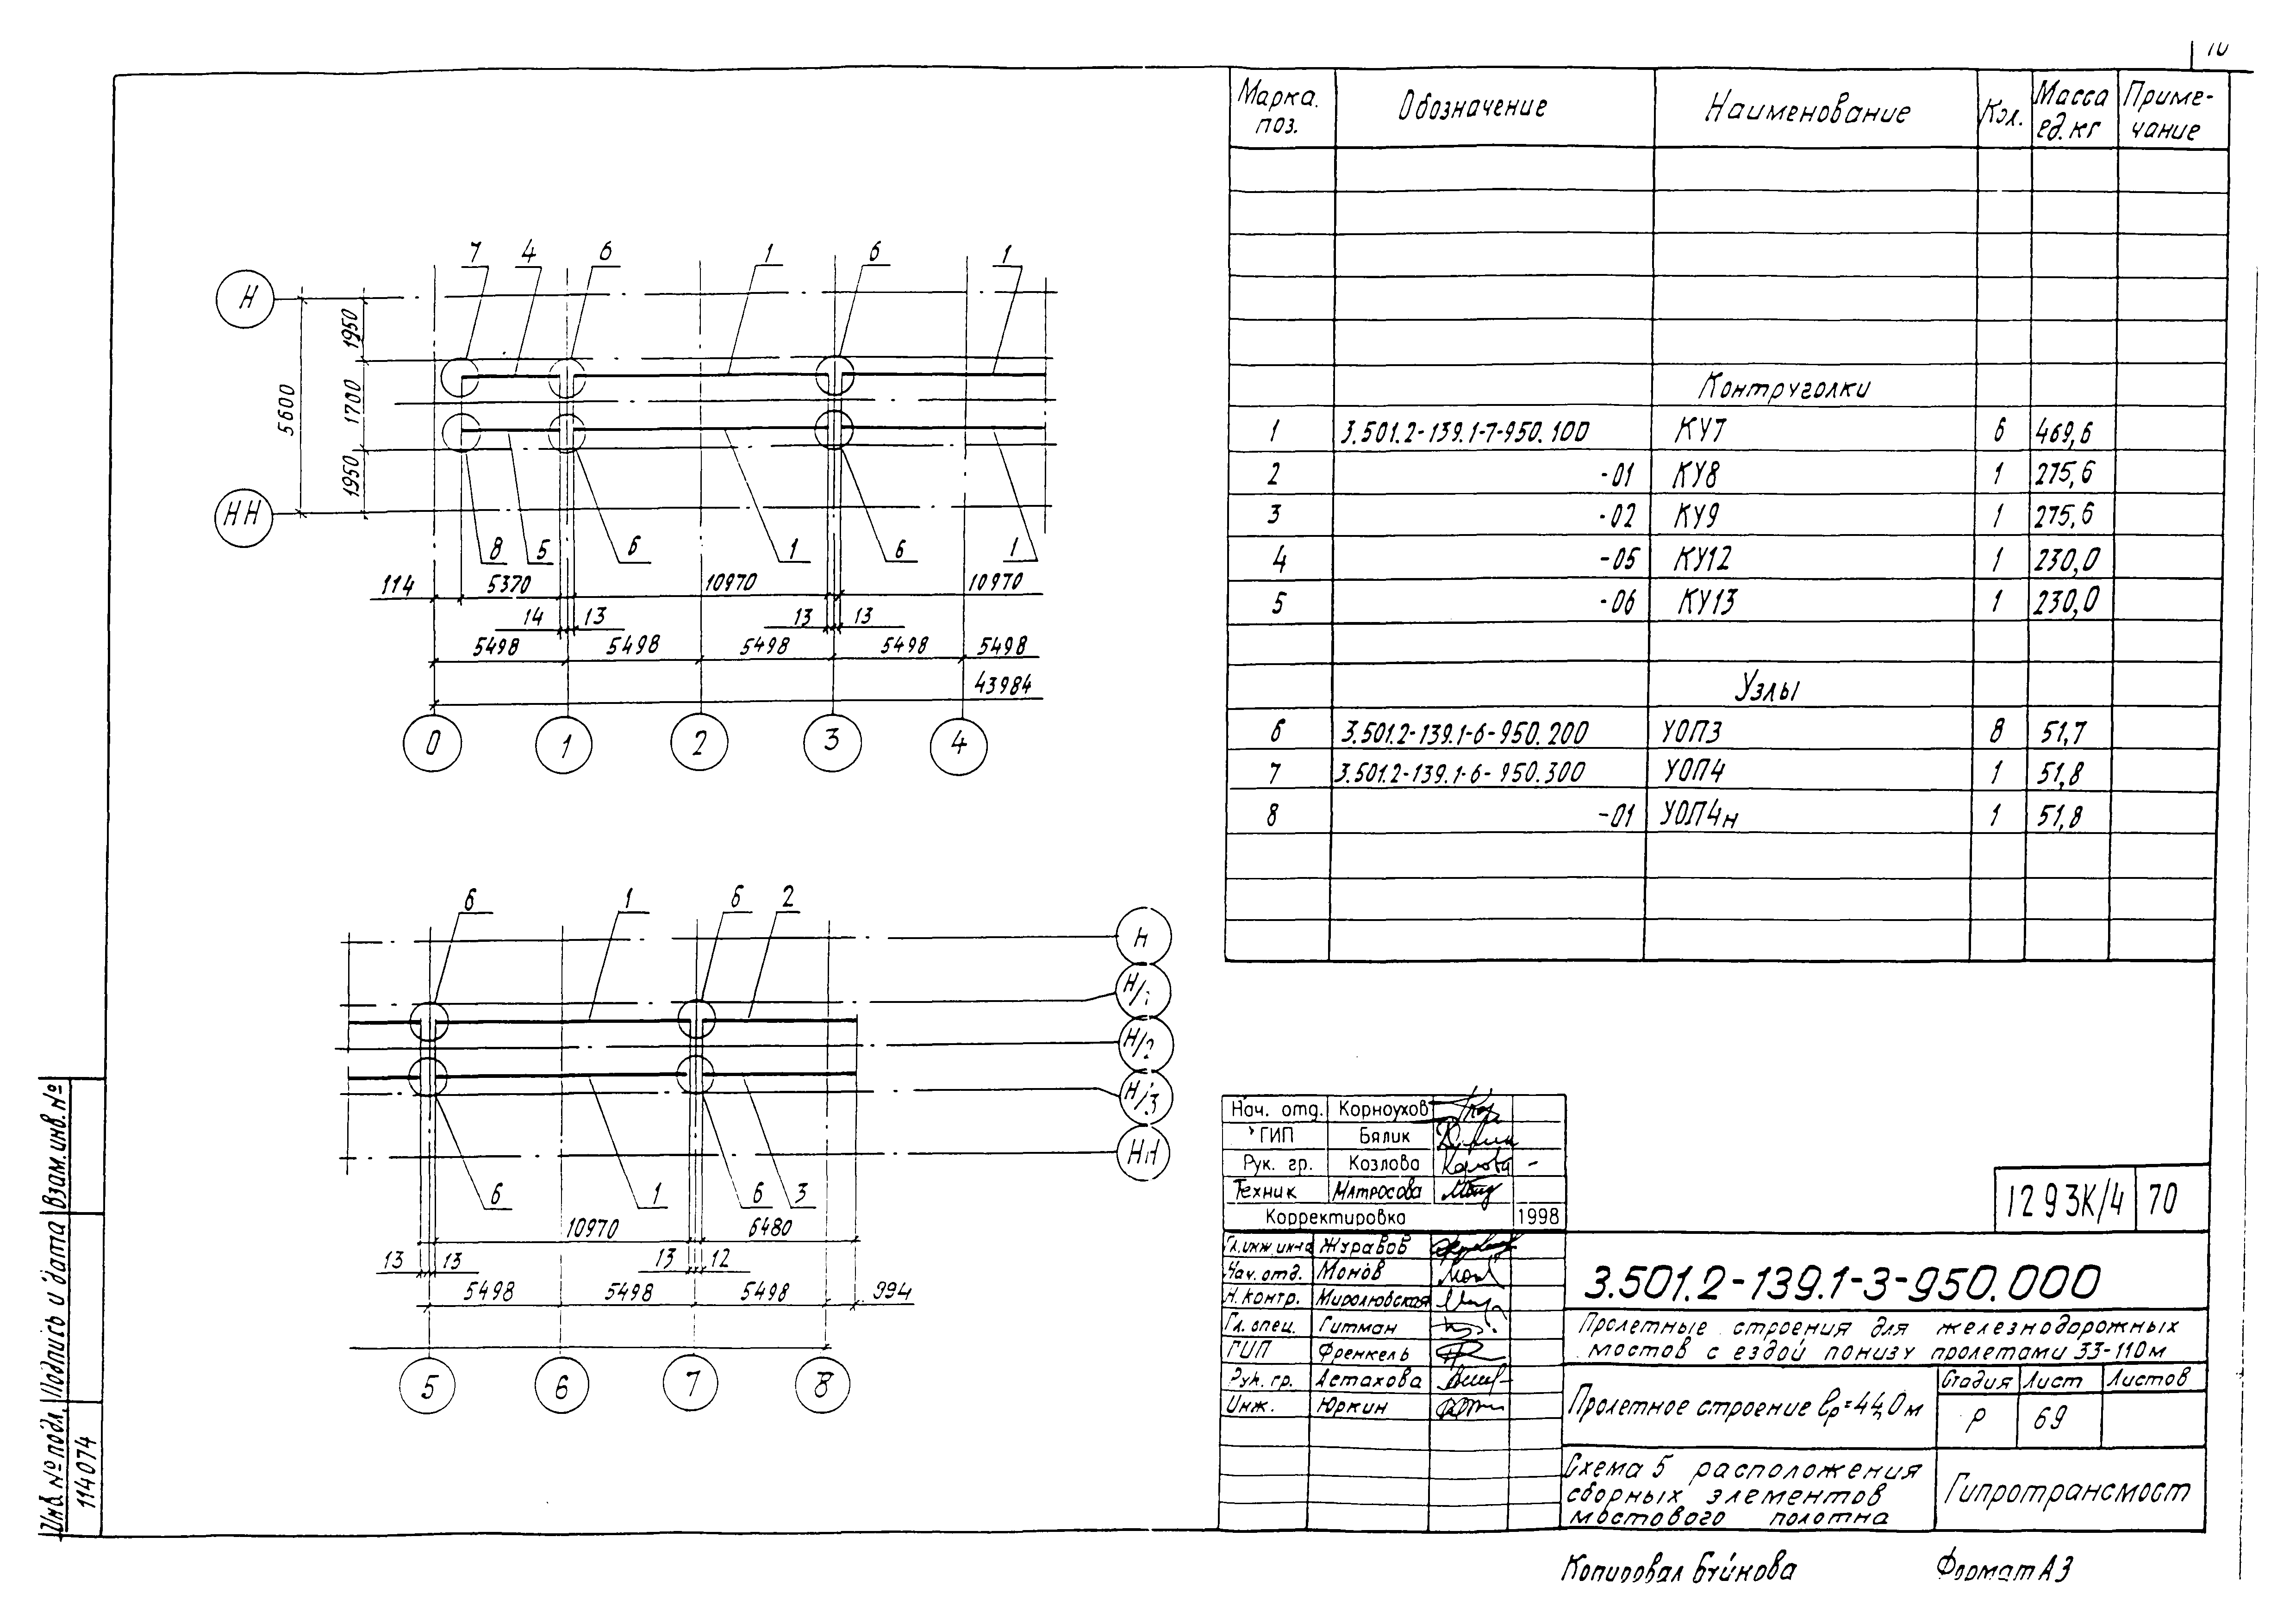 7 4 6 1 6 1
Н
1950
5600
1700
1950
НН
8 5 6 1 6 1
114 5370 10970 10970
14 13 13 13
5498 5498 5498 5498 5498
43984
0 1 2 3 4
6 1 6 2
Н
Н/1
Н/2
Н/3
НН
6 1 6 3
10970 6480
13 13 13 12
5498 5498 5498 994
5 6 7 8
Марка. поз. Обозначение Наименование Кол. Масса ед. кг Приме-чание
Контруголки
1 3.501.2-139.1-7-950.100 КУ7 6 469,6
2 -01 КУ8 1 275,6
3 -02 КУ9 1 275,6
4 -05 КУ12 1 230,0
5 -06 КУ13 1 230,0
Узлы
6 3.501.2-139.1-6-950.200 УОП3 8 51,7
7 3.501.2-139.1-6-950.300 УОП4 1 51,8
8 -01 УОП4н 1 51,8
Нач. отд. Корноухов
ГИП Бялик
Рук. гр. Козлова
Техник Матросова
Корректировка 1998
1293К/4 70
Гл. инж. ин-та Журавов
Нач. отд. Монов
Н. контр. Миролюбская
Гл. спец. Гитман
ГИП Френкель
Рук. гр. Астахова
Инж. Юркин
3.501.2-139.1-3-950.000
Пролетные строения для железнодорожных
мостов с ездой понизу пролетами 33-110м
Пролетное строение lр=44,0м
Стадия Лист Листов
Р 69
Схема 5 расположения
сборных элементов
мостового полотна
Гипротрансмост
Копировал Формат А3
Инв. № подл. Подпись и дата Взам. инв. №
114074